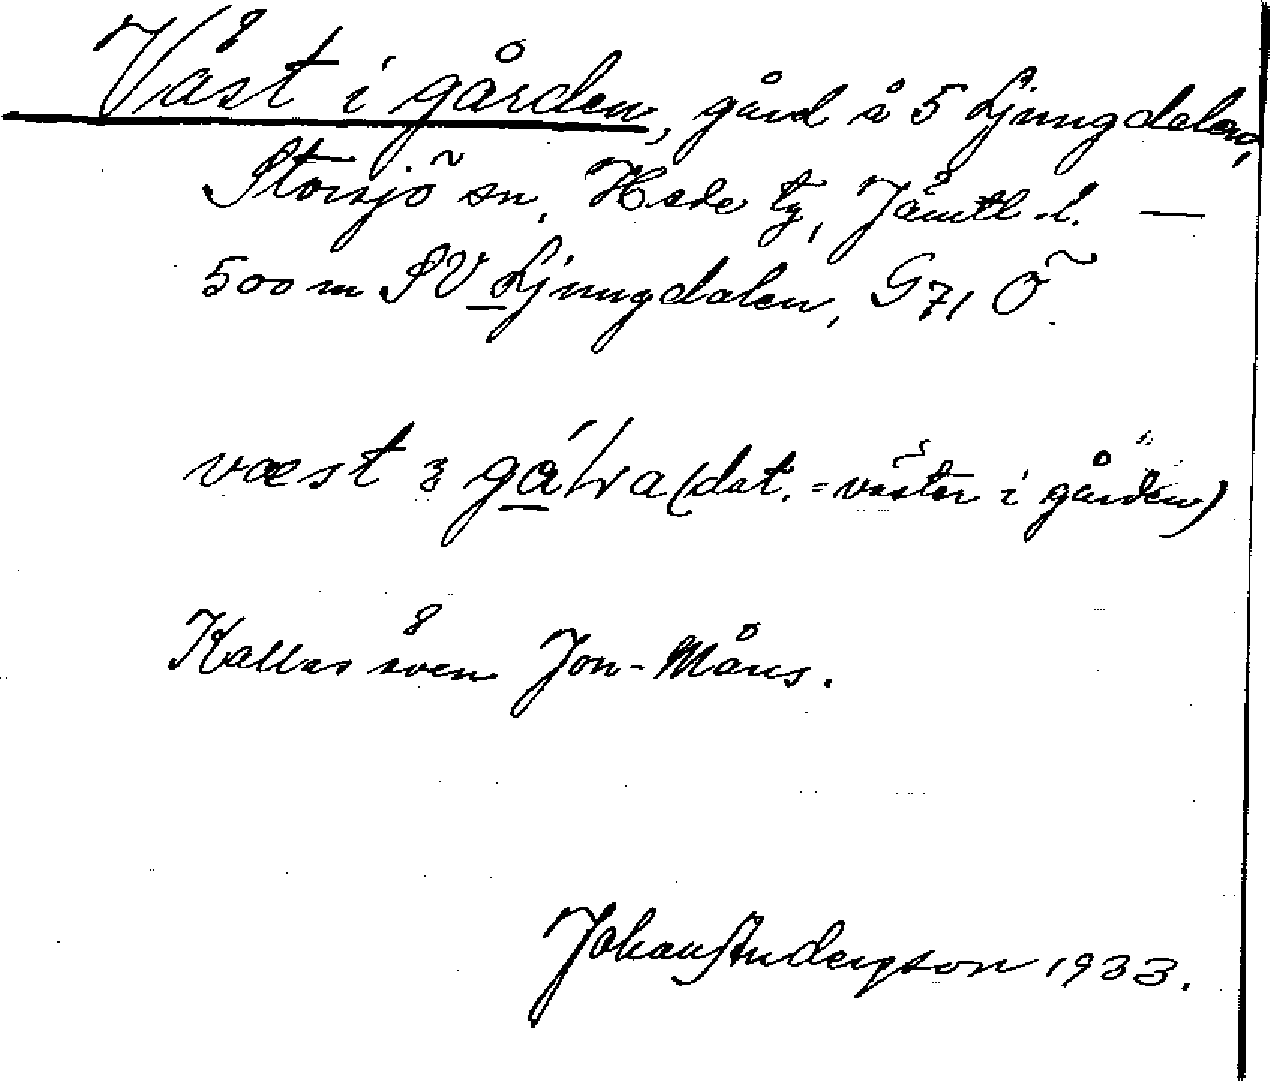 Väst i gården, gård å 5 Ljungdalen,
Storsjö sn, Hede tg, Jämtl. l. —
500 m SV Ljungdalen, G 71 Ö.
væst i (dat. = väster i gården)
Kallas även Jon-Måns.
Johan Anderson 1933.